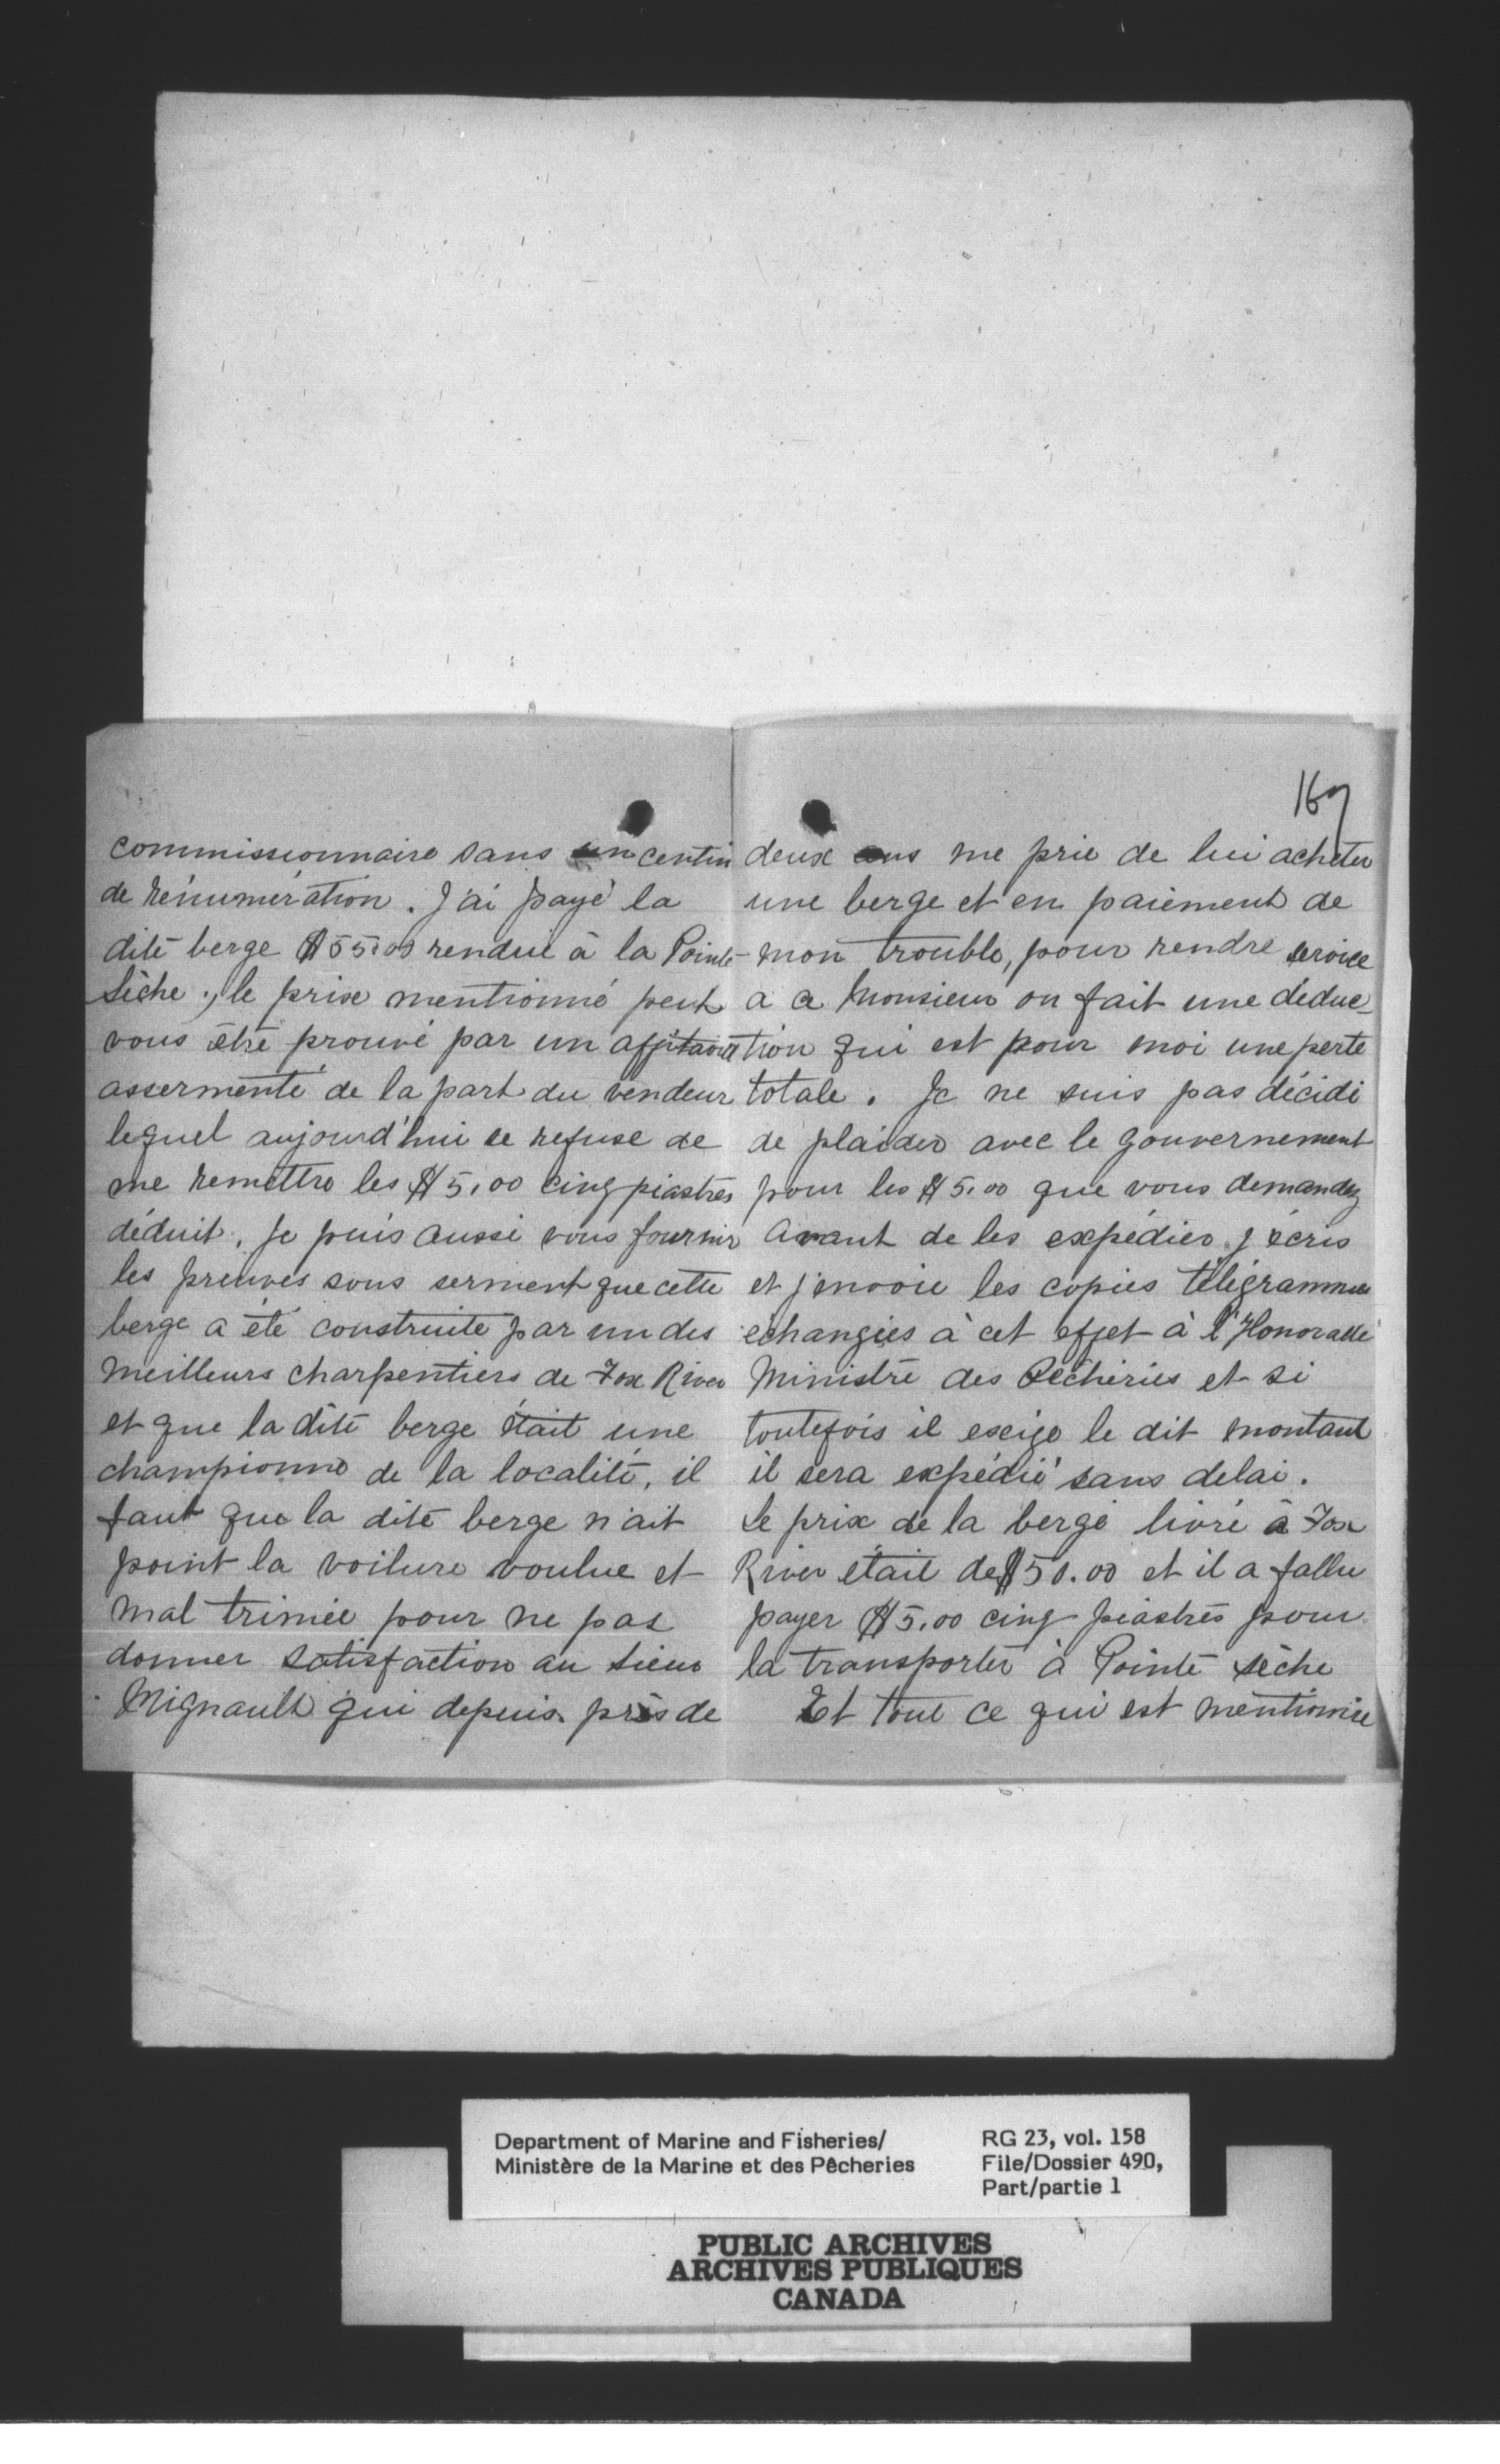 commissionnaire sans un centin
de rénumération. J'ai payé la
dite berge $55.00 rendue à la Pointe-
Sèche, le prix mentionné peut
vous être prouvé par un affidavit
assermenté de la part du vendeur
lequel aujourd'hui se refuse de
me remettre les $5.00 cinq piastres
déduit. Je puis aussi vous fournir
les preuves sous serment que cette
berge a été construite par un des
meilleurs charpentiers de Fox River
et que la dite berge était une
championne de la localité, il
faut que la dite berge n'ait
point la voilure voulue et
mal trimée pour ne pas
donner satisfaction au Sieur
Mignault qui depuis près de
169
deux ans me prie de lui acheter
une berge et en paiement de
mon trouble, pour rendre service
a ce Monsieur on fait une déduc-
tion qui est pour moi une perte
totale. Je ne suis pas décidé
de plaider avec le gouvernement
pour les $5.00 que vous demandez
Avant de les expédier j'écris
et j'envoie les copies télégrammes
échangées à cet effet à l'Honorable
Ministre des Pêcheries et si
toutefois il exige le dit montant
il sera expédié sans delai.
Le prix de la berge livré à Fox
River était de $50.00 et il a fallu
payer $5.00 cinq piastres pour
la transporter à Pointe Sèche
Et tout ce qui est mentionnée
Department of Marine and Fisheries/
Ministère de la Marine et des Pêcheries
RG 23, vol. 158
File/Dossier 490,
Part/partie 1
PUBLIC ARCHIVES
ARCHIVES PUBLIQUES
CANADA